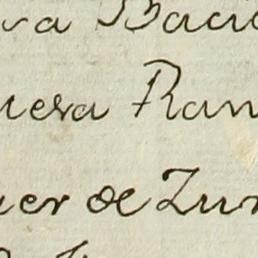 va Baci
uera Ran
uer de Zur